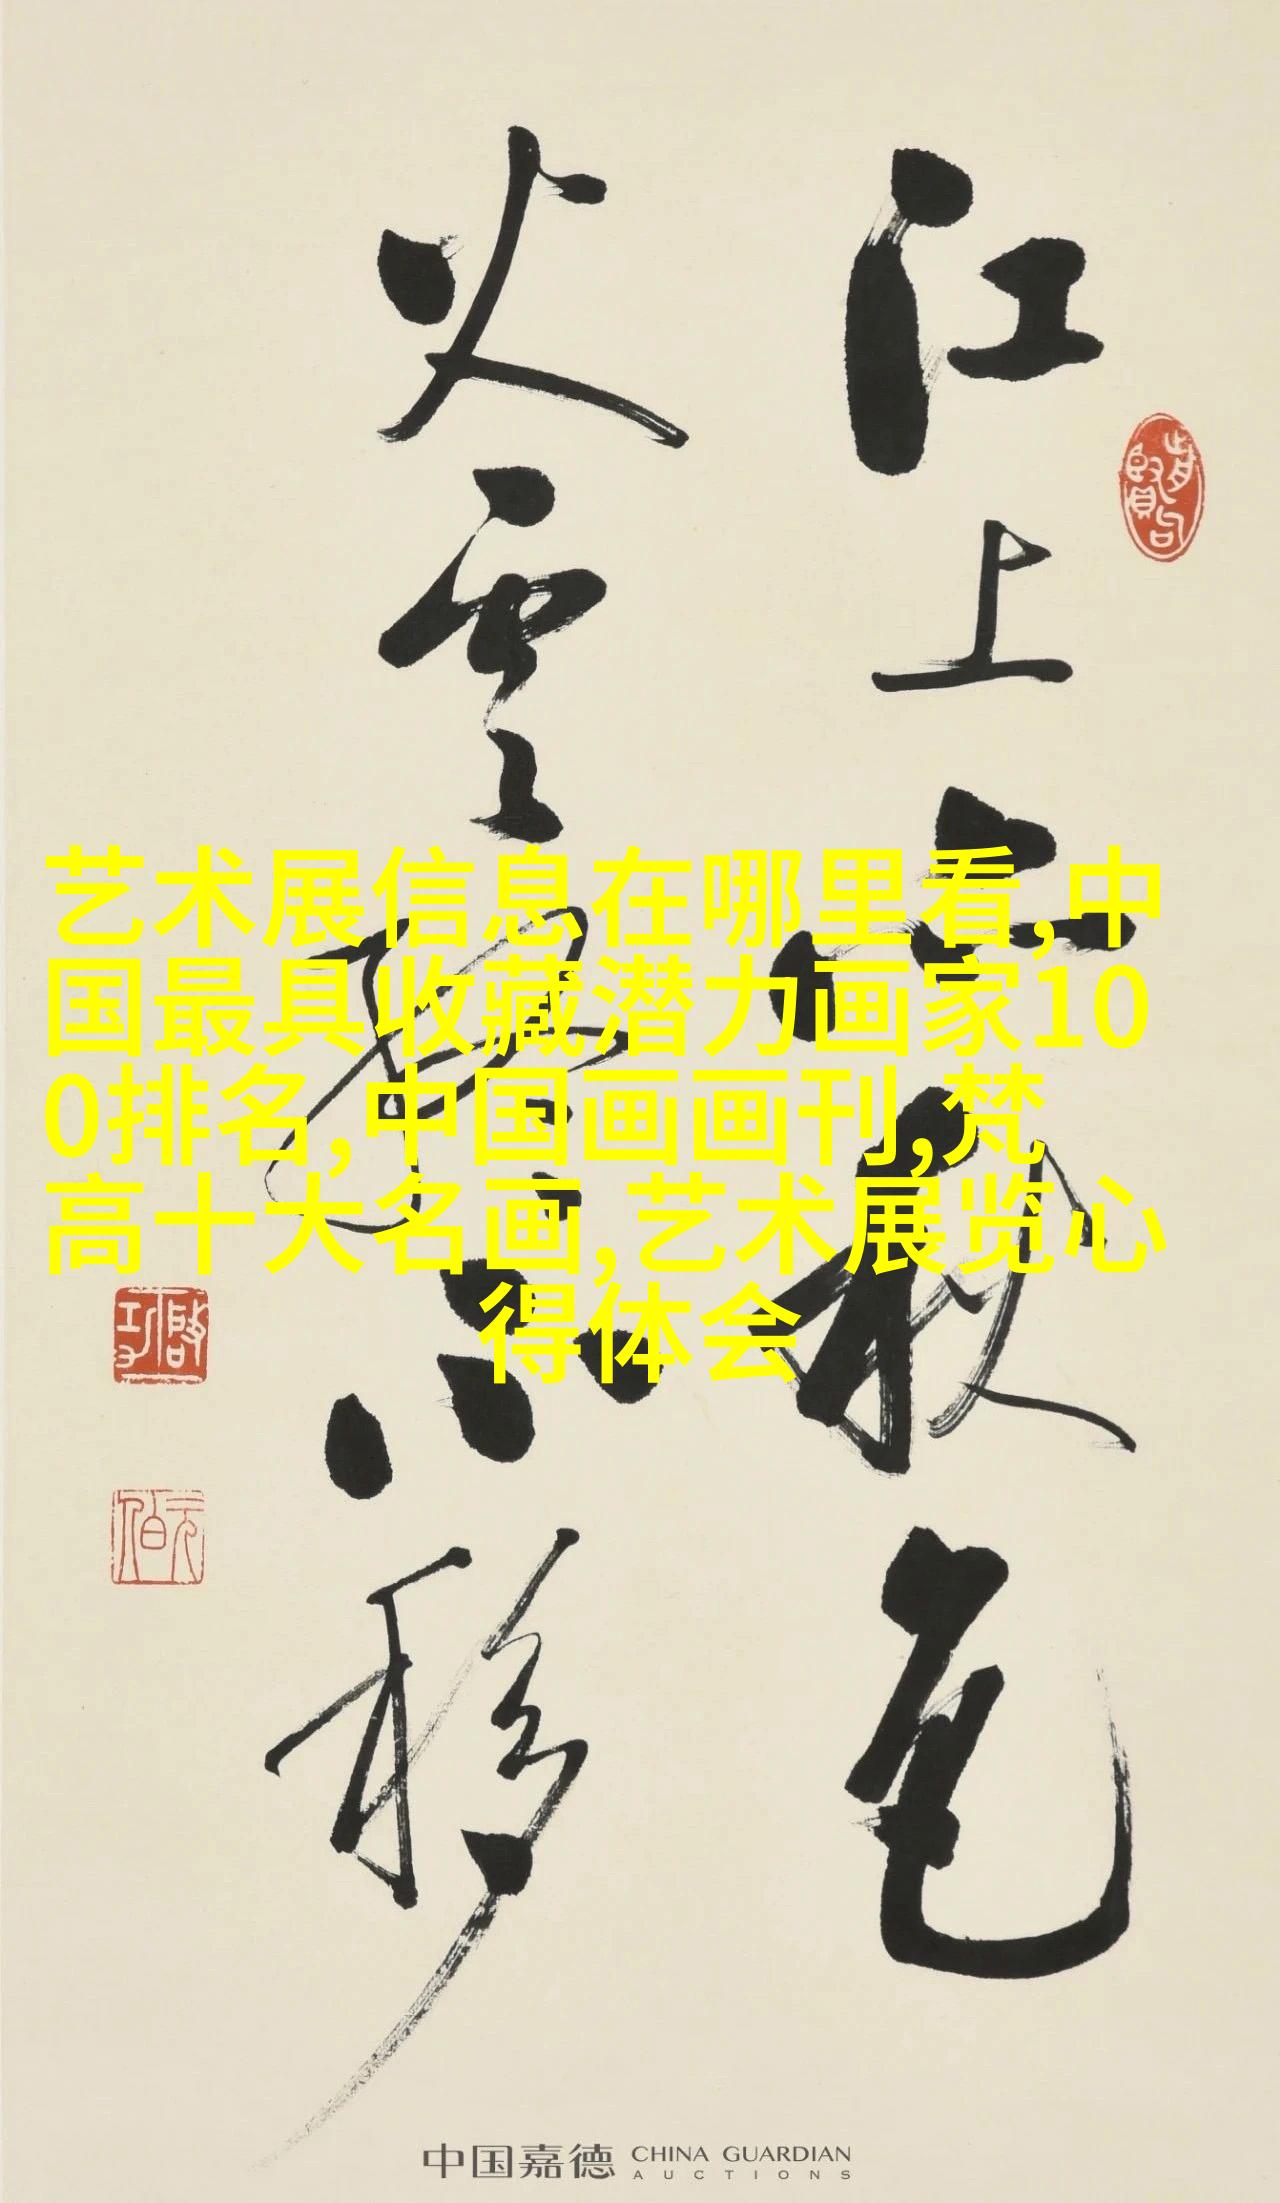 江上亦秋色
火雲終不移
啓功
元伯
艺术展信息在哪里看,中
国最具收藏潜力画家10
0排名,中国画画刊,梵
高十大名画,艺术展览心
得体会
中国嘉德 CHINA GUARDIAN
AUCTIONS